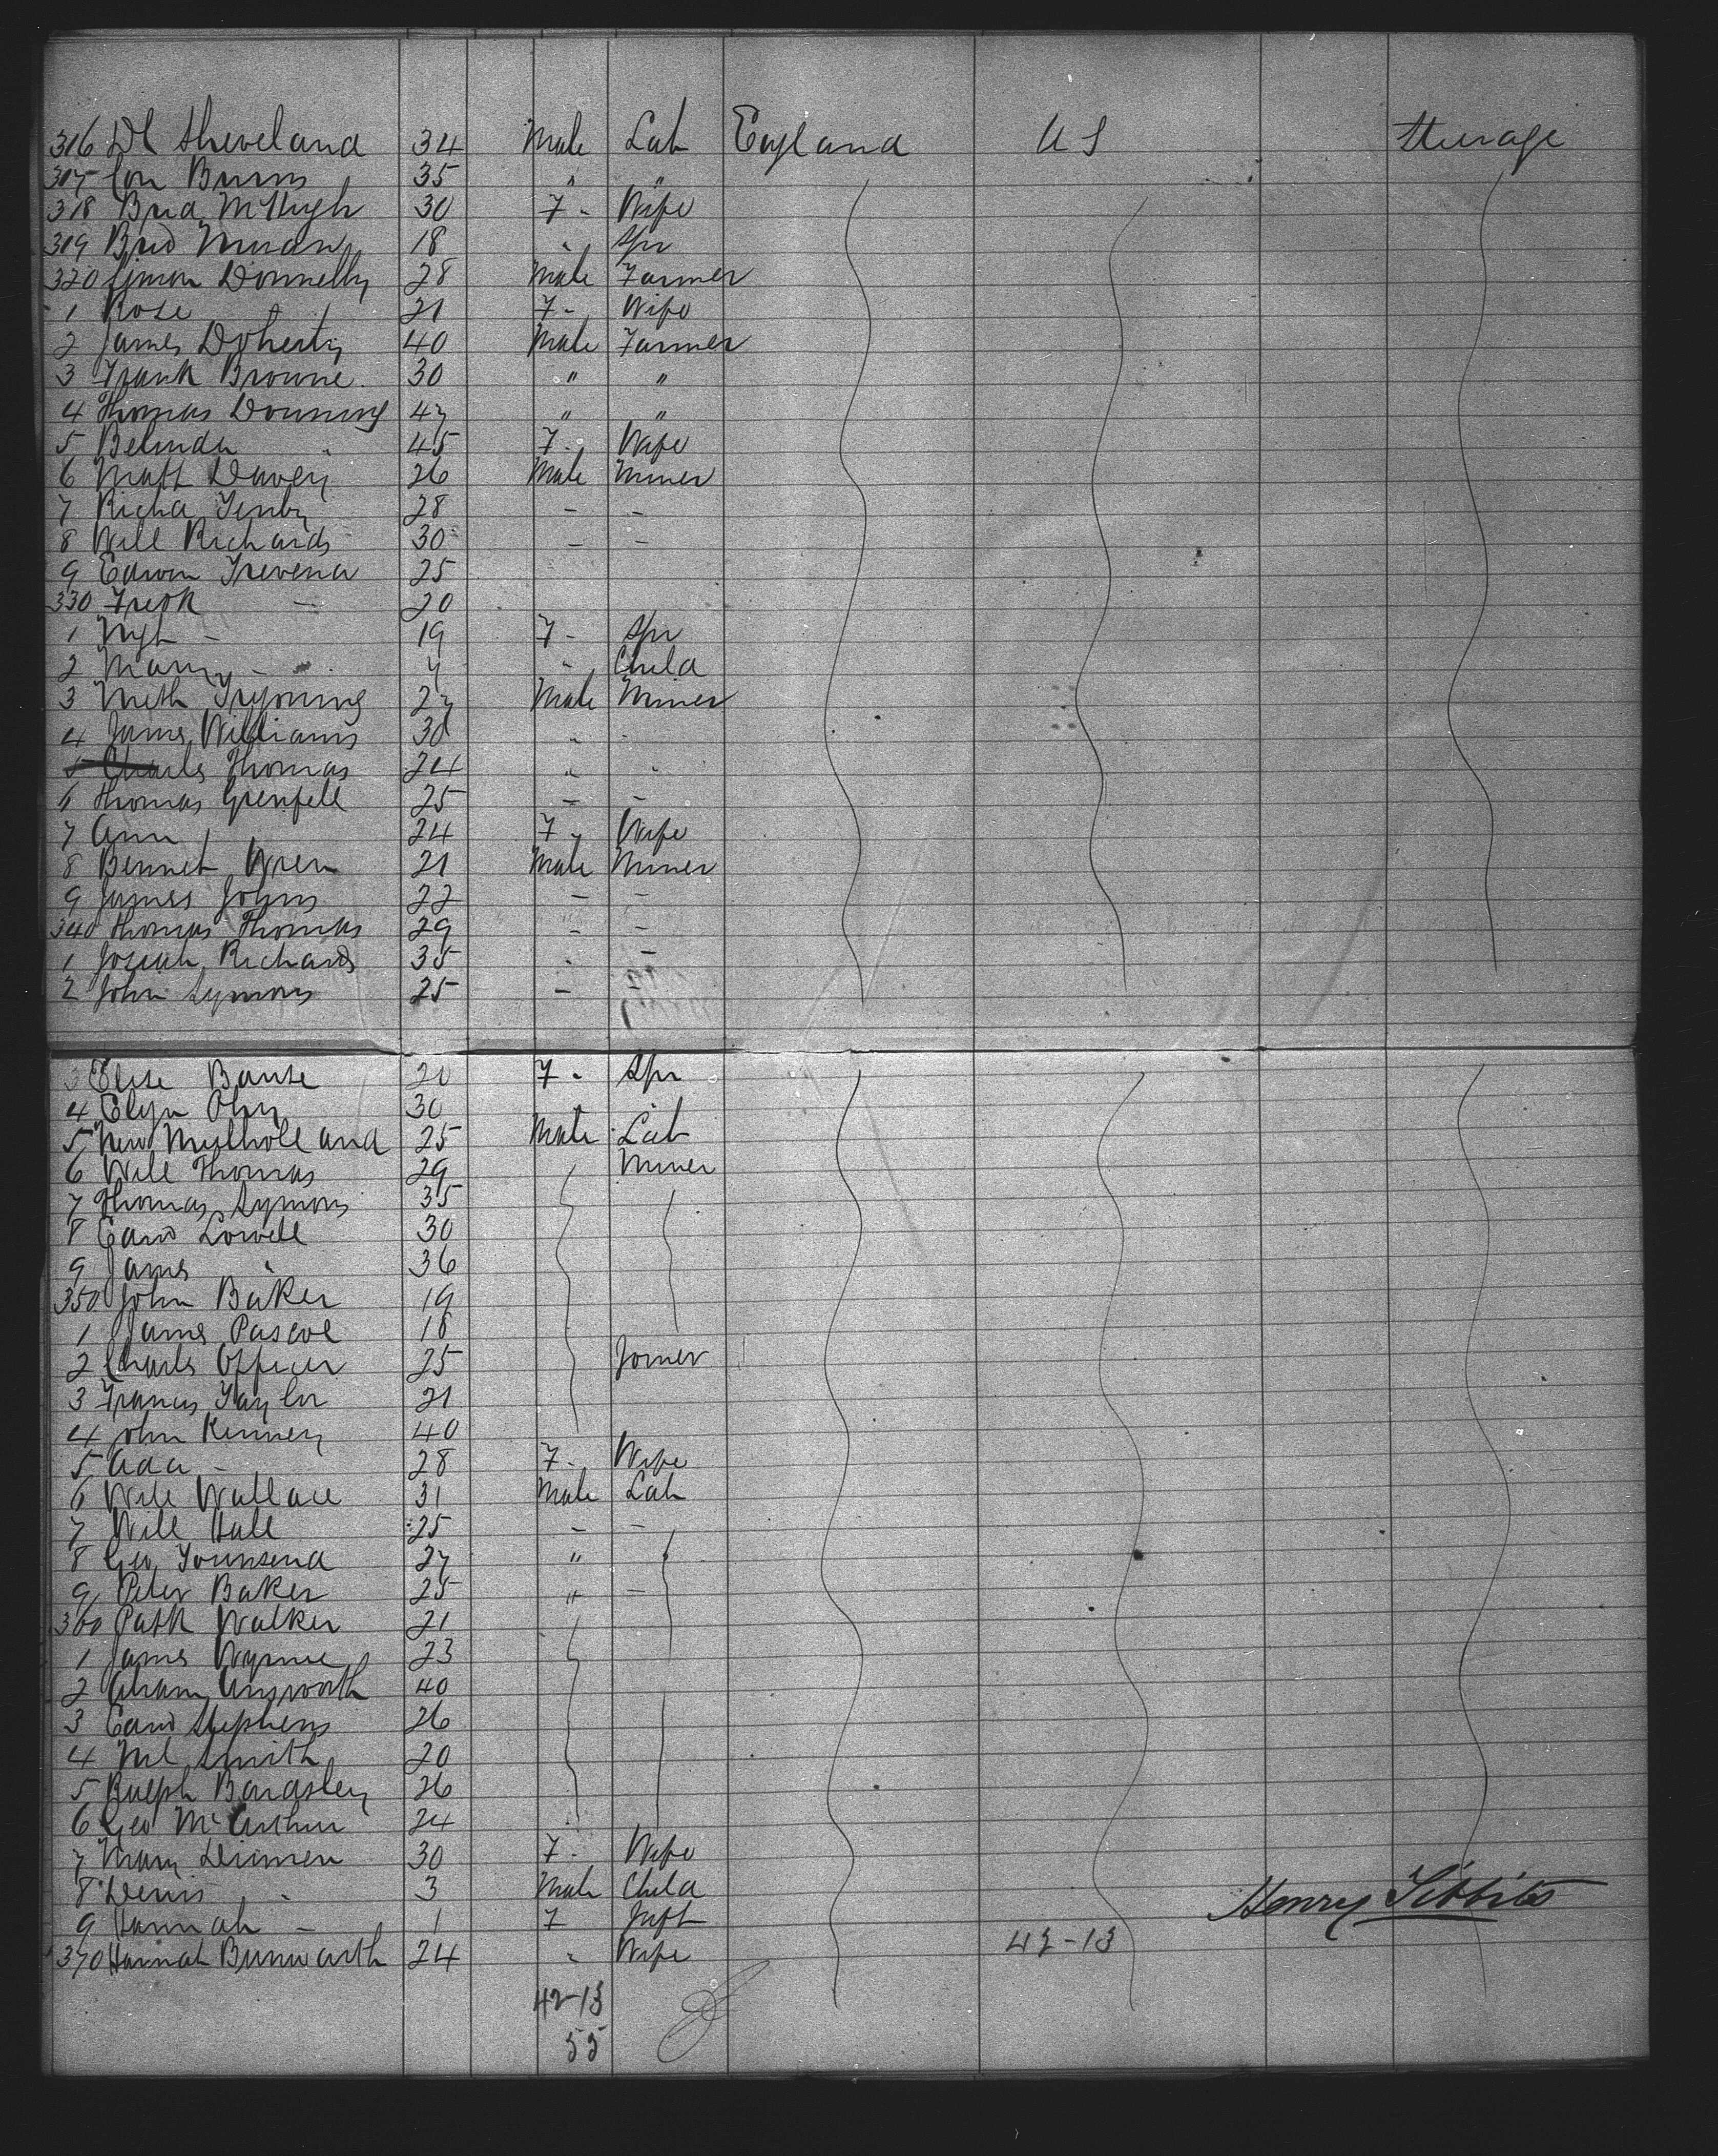 316 Dl Sheveland 34 Male Lab England US Steerage
317 Con Burns 35 " "
318 Brid McHugh 30 F - Wife
319 Brid 18 " Spr
320 Simon Donnelly 28 Male Farmer
1 Rose 21 F - Wife
2 James Doherty 40 Male Farmer
3 Frank Browne 30 " "
4 Thomas Downing 47 " "
5 Belinda " 45 F - Wife
6 Matt Davey 26 Male Miner
7 Richd 28 - -
8 Will Richards 30 - -
9 Edwin Trevena 25
330 Fredk - 20
1 - 19 F - Spr
2 Mary - 7 " Child
3 Tregoning 27 Male Miner
4 James Williams 30 " "
5 Charles Thomas 24 " "
6 Thomas Grenfell 25 - -
7 Ann 24 F - Wife
8 Bennet Wren 21 Male Miner
9 James Johns 22 - -
340 Thomas Thomas 29 - -
1 Josiah Richards 35 - -
2 John Symons 25 -
3 Elise Banse 20 F - Spr
4 30
5 Mulholland 25 Male Lab
6 Will Thomas 29 Miner
7 Thomas Symons 35
8 Edwd Lowell 30
9 James " 36
350 John Baker 19
1 James Pascoe 18
2 Charles Officer 25 Joiner
3 Francis Taylor 21
4 John Kenney 40
5 Ada - 28 F - Wife
6 Will Wallace 31 Male Lab
7 Will Hall 25 - -
8 Geo Townsend 27 "
9 Peter Baker 25 " -
360 Patk Walker 21
1 James Wynne 23
2 Abram Ainsworth 40
3 Edwd Stephens 26
4 Ml Smith 20
5 Ralph Bardsley 26
6 Geo McArthur 24
7 Mary 30 F - Wife
8 Denis " 3 Male Child
9 Hannah - 1 F Inft
370 Hannah 24 " Wife
Henry Tibbits
42-13
42-13
55